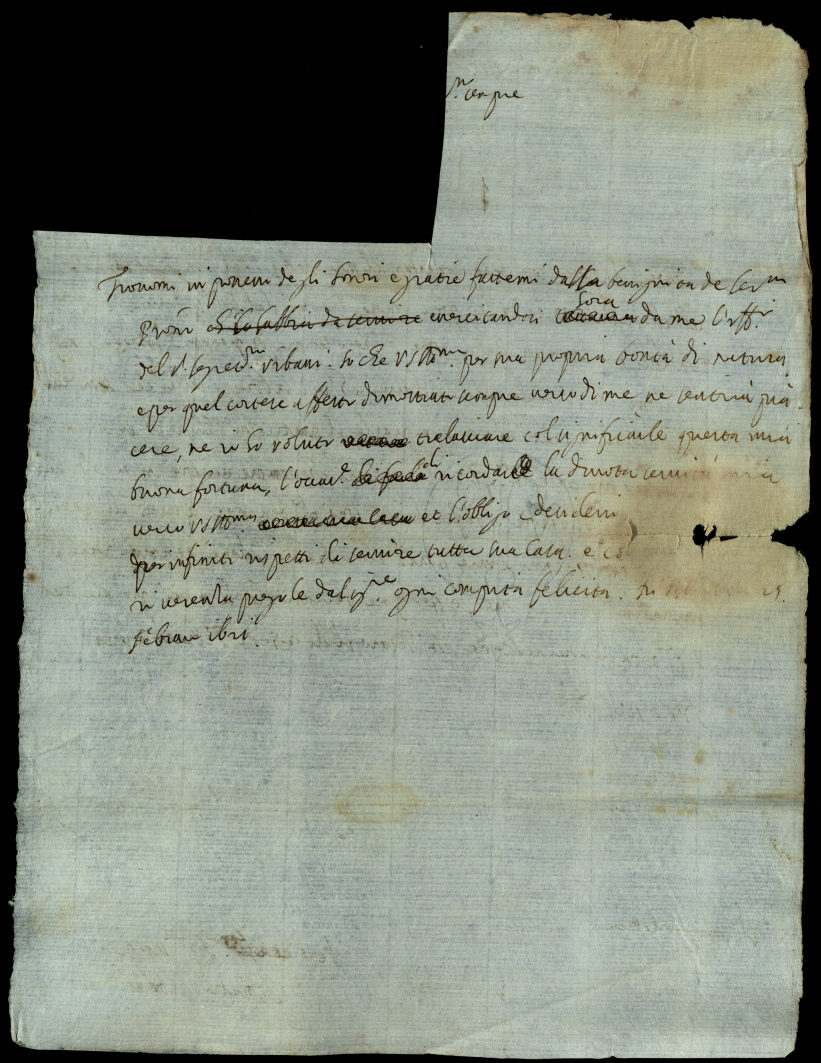 sempre
Trovomi in possesso degli honori e gratie fattemi dalla benignità de ser.mi
Proni ch'io habbia da servire exercitandosi hora da me l'uff.o
del s.r segret.rio Urbani. so che VS Ill.ma per sua propria bontà di natura
e per quel cortese affetto dimostrato sempre verso di me ne sentirà pia
cere, ne io ho voluto tralasciare col significarle questa mia
buona fortuna, l'occas.e di ricordarle la divota servitù mia
verso VS Ill.ma et l'obligo e desiderio
per infiniti rispetti di servire tutta sua Casa. e co
riverenza pregole dal s.re ogni compita felicità.
Febraro 1611.